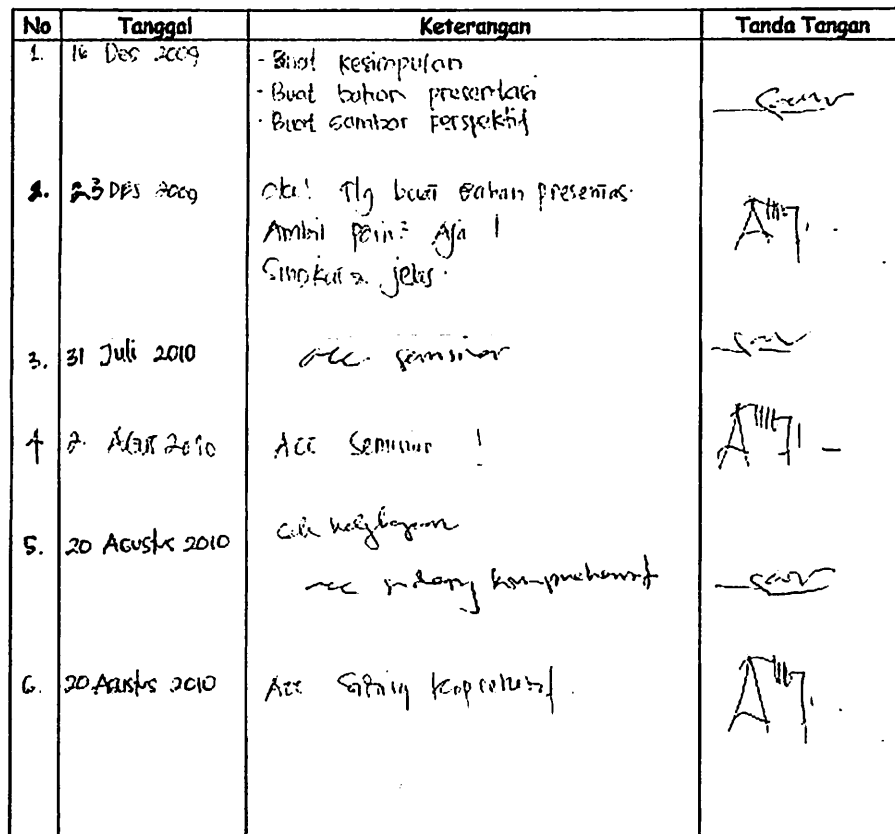 No Tanggal Keterangan Tanda Tangan
1. 16 Des 2009 - Buat kesimpulan
- Buat bahan presentasi
- Buat gambar perspektif
2. 23 DES 2009 oke! Tlg buat bahan presentasi.
Ambil poin² Aja !
Singkat & jelas.
3. 31 Juli 2010 acc seminar
4 2 Agust 2010 Acc Seminar !
5. 20 Agustus 2010 cek
acc sidang komprehensif
6. 20 Agustus 2010 Acc Sidang